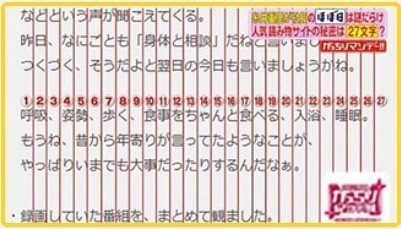 糸井重里が社長の ほぼ日 は謎だらけ
人気読み物サイトの秘密は 27文字?
がっちりマンデー!!
などという声が聞こえてくる。
昨日、なにごとも「身体と相談」だ と言い
つくづく、そうだよと翌日の今日も言いましょうかね。
① 2 3 4 5 6 7 8 9 10 11 12 13 14 15 16 17 18 19 20 21 22 23 24 25 26 27
呼吸、姿勢、歩く、食事をちゃんと食べる、入浴、睡眠。
もうね、昔から年寄りが言ってたようなことが、
やっぱりいまでも大事だったりするんだなぁ。
・録画していた番組を、まとめて観ました。
がっちり